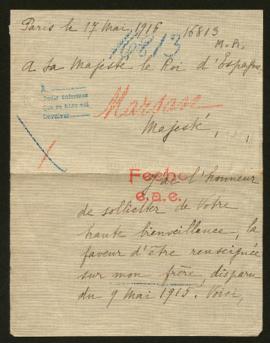 Paris le 17 Mai 1916
16813
16813
M. A.
A Sa Majesté le Roi d'Espagne.
A
Majesté,
Fecho
e.a.e.
J'ai l'honneur
de solliciter de votre
haute bienveillance, la
faveur d'être renseignée
sur mon frère, disparu
du 9 Mai 1915. Voici,